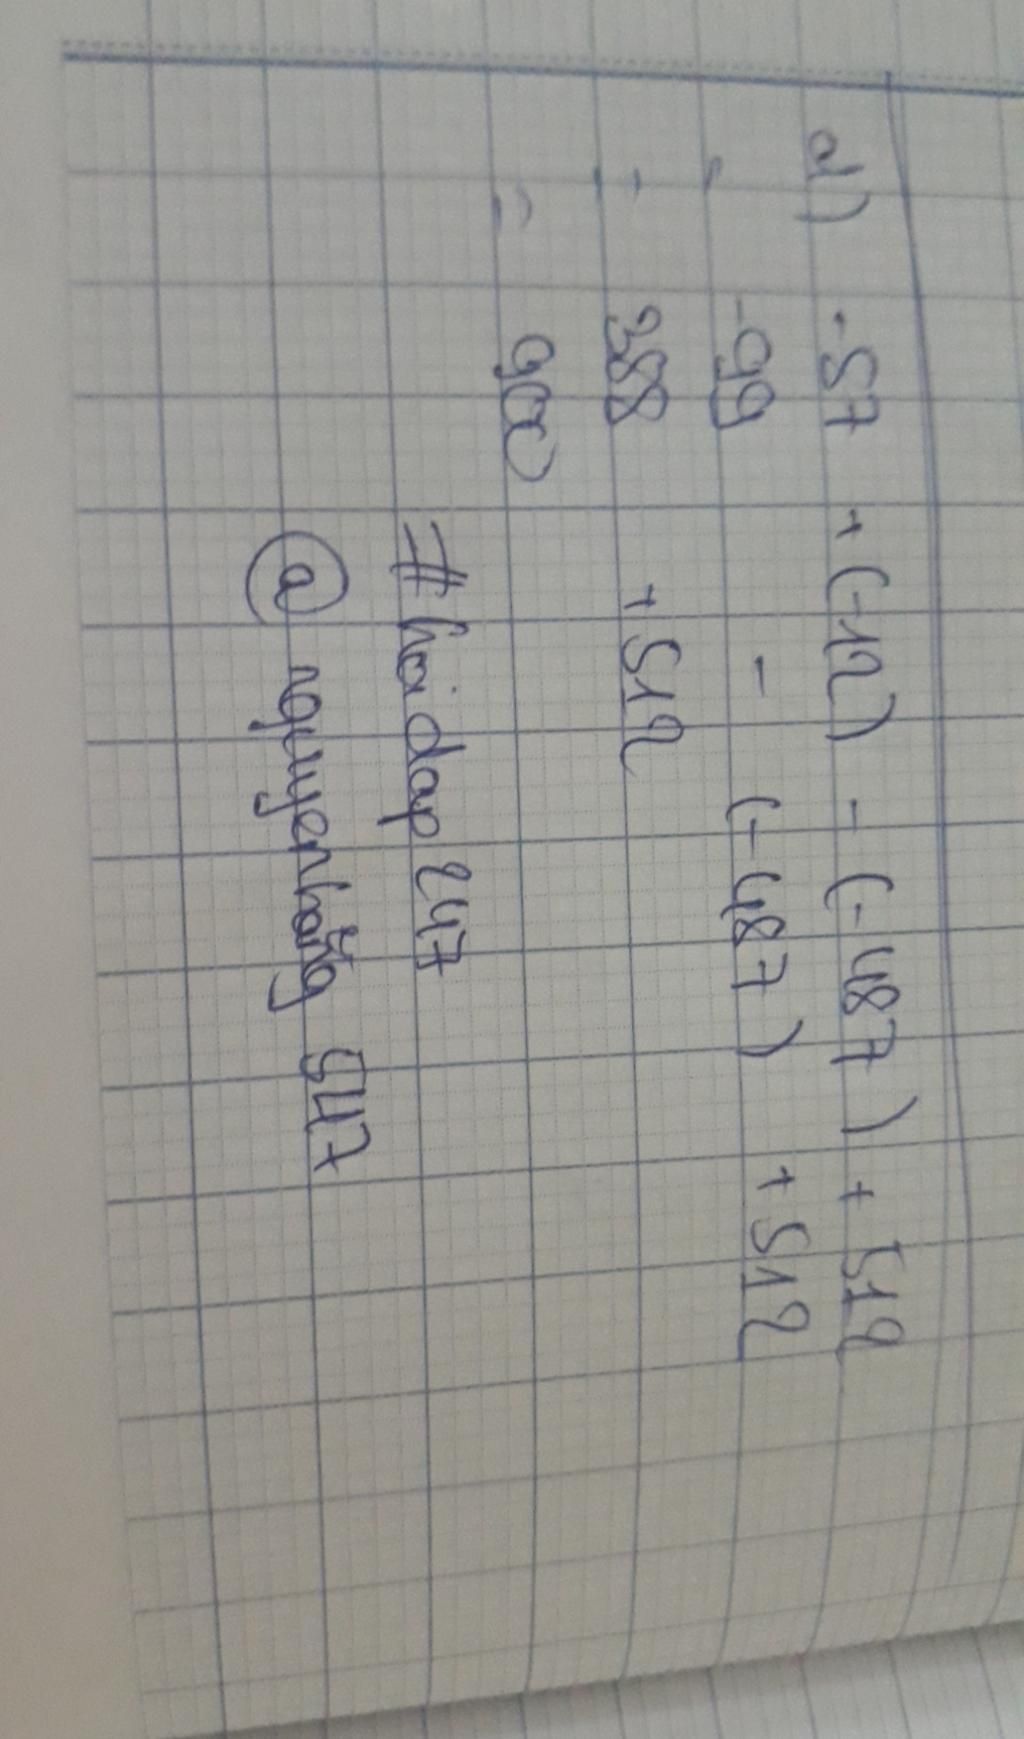 d) -87 + (-12) - (-487) + 512
= -99 - (-487) + 512
= 388 + 512
= 900
#hoidap247
@nguyenhang547